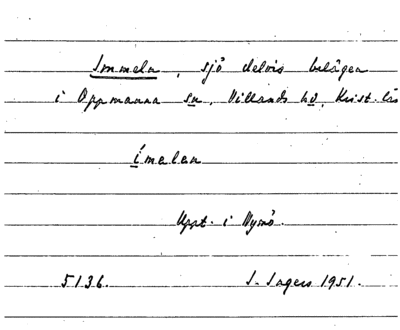 Immeln, sjö delvis belägen
i Oppmanna sn, Villands hd, Krist. län
Ímelen
Uppt. i Nymö.
5136. S. Ingers 1951.